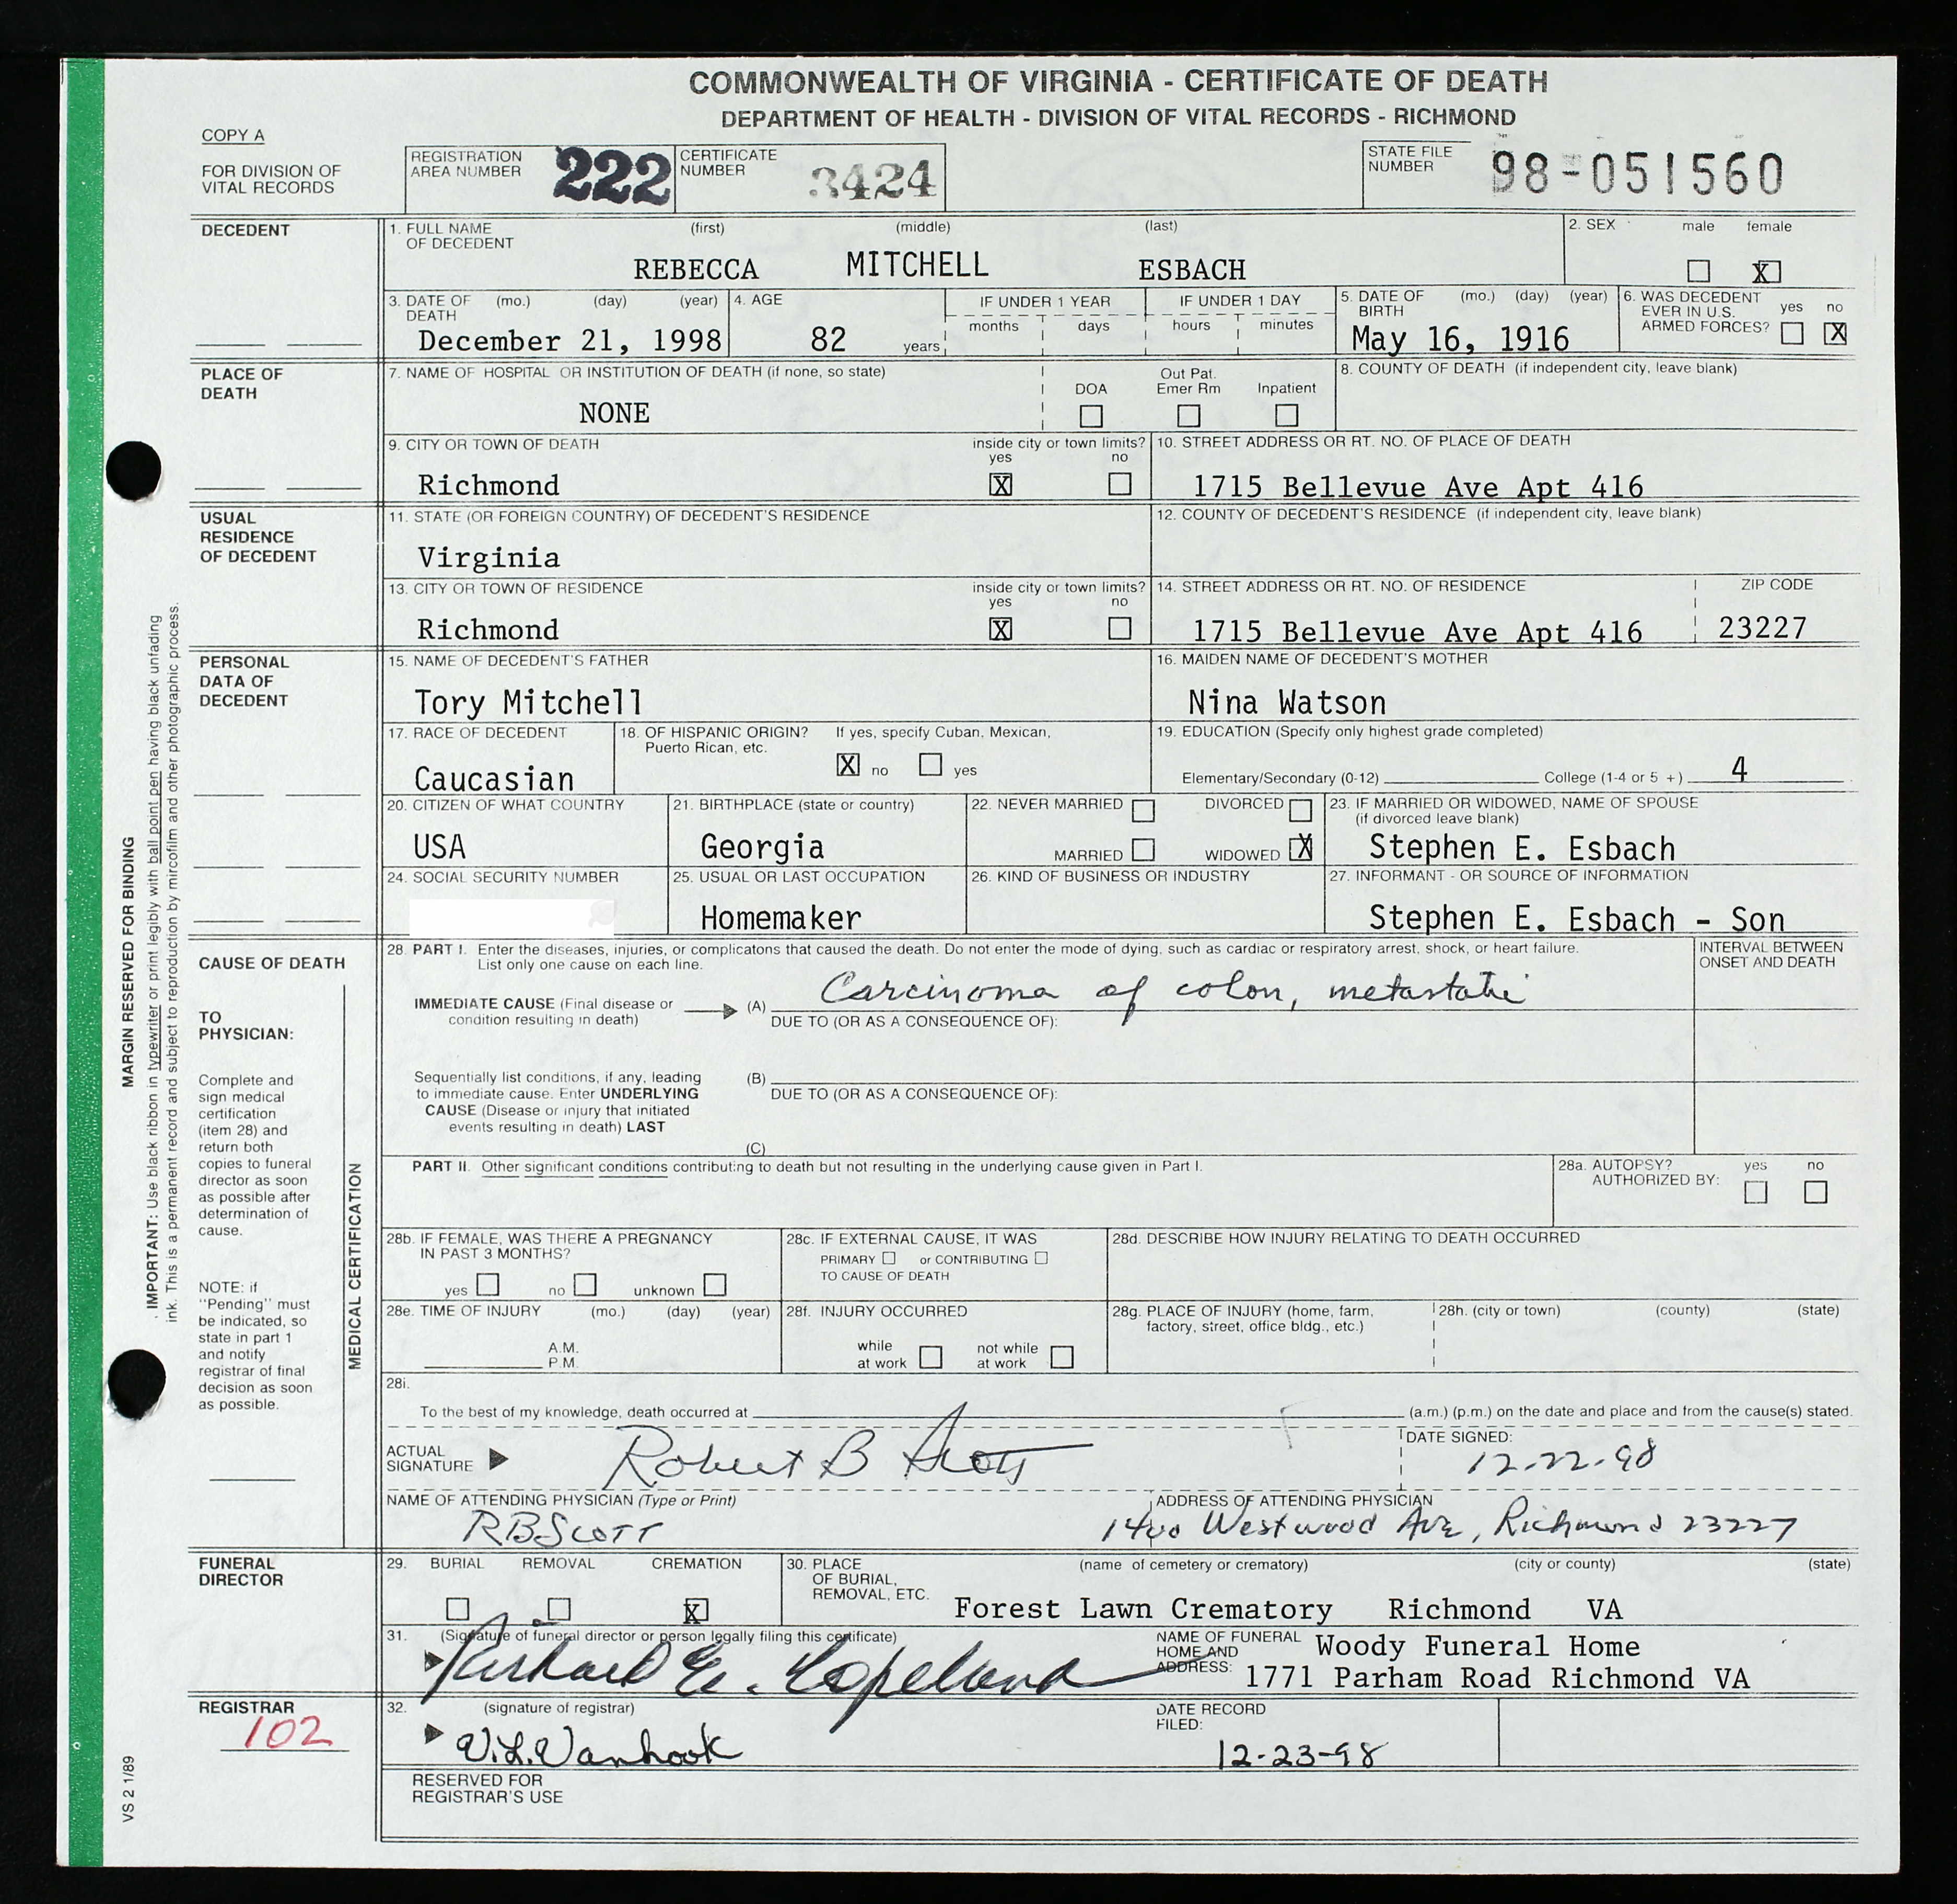 COMMONWEALTH OF VIRGINIA - CERTIFICATE OF DEATH
DEPARTMENT OF HEALTH - DIVISION OF VITAL RECORDS - RICHMOND
COPY A
FOR DIVISION OF
VITAL RECORDS
REGISTRATION
AREA NUMBER 222
CERTIFICATE
NUMBER 3424
STATE FILE
NUMBER 98-051560
DECEDENT
1. FULL NAME
OF DECEDENT
(first) (middle) (last)
REBECCA MITCHELL ESBACH
2. SEX male female
X
3. DATE OF
DEATH
(mo.) (day) (year)
December 21, 1998
4. AGE
82 years
IF UNDER 1 YEAR
months days
IF UNDER 1 DAY
hours minutes
5. DATE OF
BIRTH
(mo.) (day) (year)
May 16, 1916
6. WAS DECEDENT
EVER IN U.S.
ARMED FORCES?
yes no
X
PLACE OF
DEATH
7. NAME OF HOSPITAL OR INSTITUTION OF DEATH (if none, so state)
NONE
DOA
Out Pat.
Emer Rm
Inpatient
8. COUNTY OF DEATH (if independent city, leave blank)
9. CITY OR TOWN OF DEATH
Richmond
inside city or town limits?
yes no
X
10. STREET ADDRESS OR RT. NO. OF PLACE OF DEATH
1715 Bellevue Ave Apt 416
USUAL
RESIDENCE
OF DECEDENT
11. STATE (OR FOREIGN COUNTRY) OF DECEDENT'S RESIDENCE
Virginia
12. COUNTY OF DECEDENT'S RESIDENCE (if independent city, leave blank)
13. CITY OR TOWN OF RESIDENCE
Richmond
inside city or town limits?
yes no
X
14. STREET ADDRESS OR RT. NO. OF RESIDENCE
1715 Bellevue Ave Apt 416
ZIP CODE
23227
PERSONAL
DATA OF
DECEDENT
15. NAME OF DECEDENT'S FATHER
Tory Mitchell
16. MAIDEN NAME OF DECEDENT'S MOTHER
Nina Watson
17. RACE OF DECEDENT
Caucasian
18. OF HISPANIC ORIGIN? If yes, specify Cuban, Mexican,
Puerto Rican, etc.
X no yes
19. EDUCATION (Specify only highest grade completed)
Elementary/Secondary (0-12) College (1-4 or 5 +) 4
20. CITIZEN OF WHAT COUNTRY
USA
21. BIRTHPLACE (state or country)
Georgia
22. NEVER MARRIED DIVORCED
MARRIED WIDOWED X
23. IF MARRIED OR WIDOWED, NAME OF SPOUSE
(if divorced leave blank)
Stephen E. Esbach
24. SOCIAL SECURITY NUMBER
25. USUAL OR LAST OCCUPATION
Homemaker
26. KIND OF BUSINESS OR INDUSTRY
27. INFORMANT - OR SOURCE OF INFORMATION
Stephen E. Esbach - Son
CAUSE OF DEATH
TO
PHYSICIAN:
Complete and
sign medical
certification
(item 28) and
return both
copies to funeral
director as soon
as possible after
determination of
cause.
NOTE: if
"Pending" must
be indicated, so
state in part 1
and notify
registrar of final
decision as soon
as possible.
MEDICAL CERTIFICATION
28. PART I. Enter the diseases, injuries, or complicatons that caused the death. Do not enter the mode of dying, such as cardiac or respiratory arrest, shock, or heart failure.
List only one cause on each line.
INTERVAL BETWEEN
ONSET AND DEATH
IMMEDIATE CAUSE (Final disease or
condition resulting in death)
(A) Carcinoma of colon, metastatic
DUE TO (OR AS A CONSEQUENCE OF):
Sequentially list conditions, if any, leading
to immediate cause. Enter UNDERLYING
CAUSE (Disease or injury that initiated
events resulting in death) LAST
(B)
DUE TO (OR AS A CONSEQUENCE OF):
(C)
PART II. Other significant conditions contributing to death but not resulting in the underlying cause given in Part I.
28a. AUTOPSY?
AUTHORIZED BY:
yes no
28b. IF FEMALE, WAS THERE A PREGNANCY
IN PAST 3 MONTHS?
yes no unknown
28c. IF EXTERNAL CAUSE, IT WAS
PRIMARY or CONTRIBUTING
TO CAUSE OF DEATH
28d. DESCRIBE HOW INJURY RELATING TO DEATH OCCURRED
28e. TIME OF INJURY (mo.) (day) (year)
A.M.
P.M.
28f. INJURY OCCURRED
while
at work
not while
at work
28g. PLACE OF INJURY (home, farm,
factory, street, office bldg., etc.)
28h. (city or town) (county) (state)
28i.
To the best of my knowledge, death occurred at (a.m.) (p.m.) on the date and place and from the cause(s) stated.
ACTUAL
SIGNATURE
Robert B Scott
DATE SIGNED:
12-22-98
NAME OF ATTENDING PHYSICIAN (Type or Print)
RBSCOTT
ADDRESS OF ATTENDING PHYSICIAN
1400 Westwood Ave, Richmond 23227
FUNERAL
DIRECTOR
29. BURIAL REMOVAL CREMATION
X
30. PLACE
OF BURIAL,
REMOVAL, ETC.
(name of cemetery or crematory) (city or county) (state)
Forest Lawn Crematory Richmond VA
31. (Signature of funeral director or person legally filing this certificate)
Richard E. Copeland
NAME OF FUNERAL
HOME AND
ADDRESS:
Woody Funeral Home
1771 Parham Road Richmond VA
REGISTRAR
102
32. (signature of registrar)
V.L.Vanhook
DATE RECORD
FILED:
12-23-98
RESERVED FOR
REGISTRAR'S USE
MARGIN RESERVED FOR BINDING
IMPORTANT: Use black ribbon in typewriter or print legibly with ball point pen having black unfading
ink. This is a permanent record and subject to reproduction by mircofilm and other photographic process.
VS 2 1/89